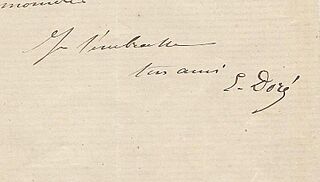 Je t'embrasse
ton ami
G. Doré